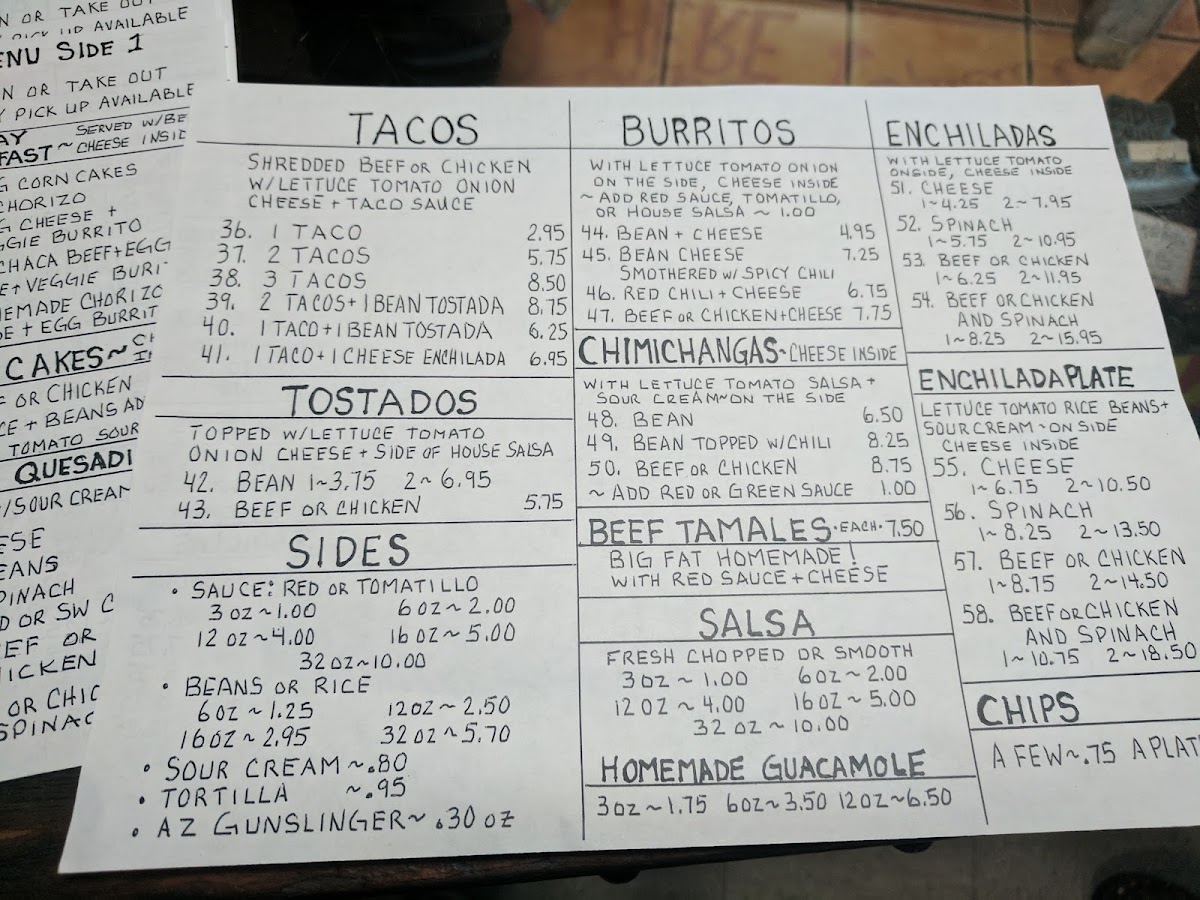 N OR TAKE OUT
PICK UP AVAILABLE
ENU SIDE 1
N OR TAKE OUT
Y PICK UP AVAILABLE
AY SERVED W/BE
FAST~ CHEESE INSID
G CORN CAKES
CHORIZO
G CHEESE +
GGIE BURRITO
CHACA BEEF+EGG
E+VEGGIE BURI
HEMADE CHORIZO
SE + EGG BURRIT
CAKES~
F OR CHICKEN
CE + BEANS AD
TOMATO SOUR
QUESADI
/SOUR CREAM
ESE
EANS
PINACH
D OR SW C
EEF OR
HICKEN
OR CHIC
SPINAC
TACOS
SHREDDED BEEF OR CHICKEN
W/LETTUCE TOMATO ONION
CHEESE + TACO SAUCE
36. 1 TACO 2.95
37. 2 TACOS 5.75
38. 3 TACOS 8.50
39. 2 TACOS+1 BEAN TOSTADA 8.75
40. 1 TACO+1 BEAN TOSTADA 6.25
41. 1 TACO+1 CHEESE ENCHILADA 6.95
TOSTADOS
TOPPED W/LETTUCE TOMATO
ONION CHEESE + SIDE OF HOUSE SALSA
42. BEAN 1~3.75 2~6.95
43. BEEF OR CHICKEN 5.75
SIDES
• SAUCE: RED OR TOMATILLO
3 OZ~1.00 6 OZ~2.00
12 OZ~4.00 16 OZ~5.00
32 OZ~10.00
• BEANS OR RICE
6 OZ~1.25 12 OZ~2.50
16 OZ~2.95 32 OZ~5.70
• SOUR CREAM~.80
• TORTILLA ~.95
• AZ GUNSLINGER~ .30 OZ
BURRITOS
WITH LETTUCE TOMATO ONION
ON THE SIDE, CHEESE INSIDE
~ ADD RED SAUCE, TOMATILLO,
OR HOUSE SALSA ~ 1.00
44. BEAN + CHEESE 4.95
45. BEAN CHEESE 7.25
SMOTHERED W/ SPICY CHILI
46. RED CHILI + CHEESE 6.75
47. BEEF OR CHICKEN+CHEESE 7.75
CHIMICHANGAS~CHEESE INSIDE
WITH LETTUCE TOMATO SALSA +
SOUR CREAM~ON THE SIDE
48. BEAN 6.50
49. BEAN TOPPED W/CHILI 8.25
50. BEEF OR CHICKEN 8.75
~ ADD RED OR GREEN SAUCE 1.00
BEEF TAMALES·EACH·7.50
BIG FAT HOMEMADE!
WITH RED SAUCE + CHEESE
SALSA
FRESH CHOPPED OR SMOOTH
3 OZ ~ 1.00 6 OZ ~ 2.00
12 OZ ~ 4.00 16 OZ ~ 5.00
32 OZ ~ 10.00
HOMEMADE GUACAMOLE
3 OZ~1.75 6 OZ~3.50 12 OZ~6.50
ENCHILADAS
WITH LETTUCE TOMATO
ONSIDE, CHEESE INSIDE
51. CHEESE
1~4.25 2~7.95
52. SPINACH
1~5.75 2~10.95
53. BEEF OR CHICKEN
1~6.25 2~11.95
54. BEEF OR CHICKEN
AND SPINACH
1~8.25 2~15.95
ENCHILADA PLATE
LETTUCE TOMATO RICE BEANS+
SOUR CREAM~ON SIDE
CHEESE INSIDE
55. CHEESE
1~6.75 2~10.50
56. SPINACH
1~8.25 2~13.50
57. BEEF OR CHICKEN
1~8.75 2~14.50
58. BEEF OR CHICKEN
AND SPINACH
1~10.75 2~18.50
CHIPS
A FEW~.75 A PLAT